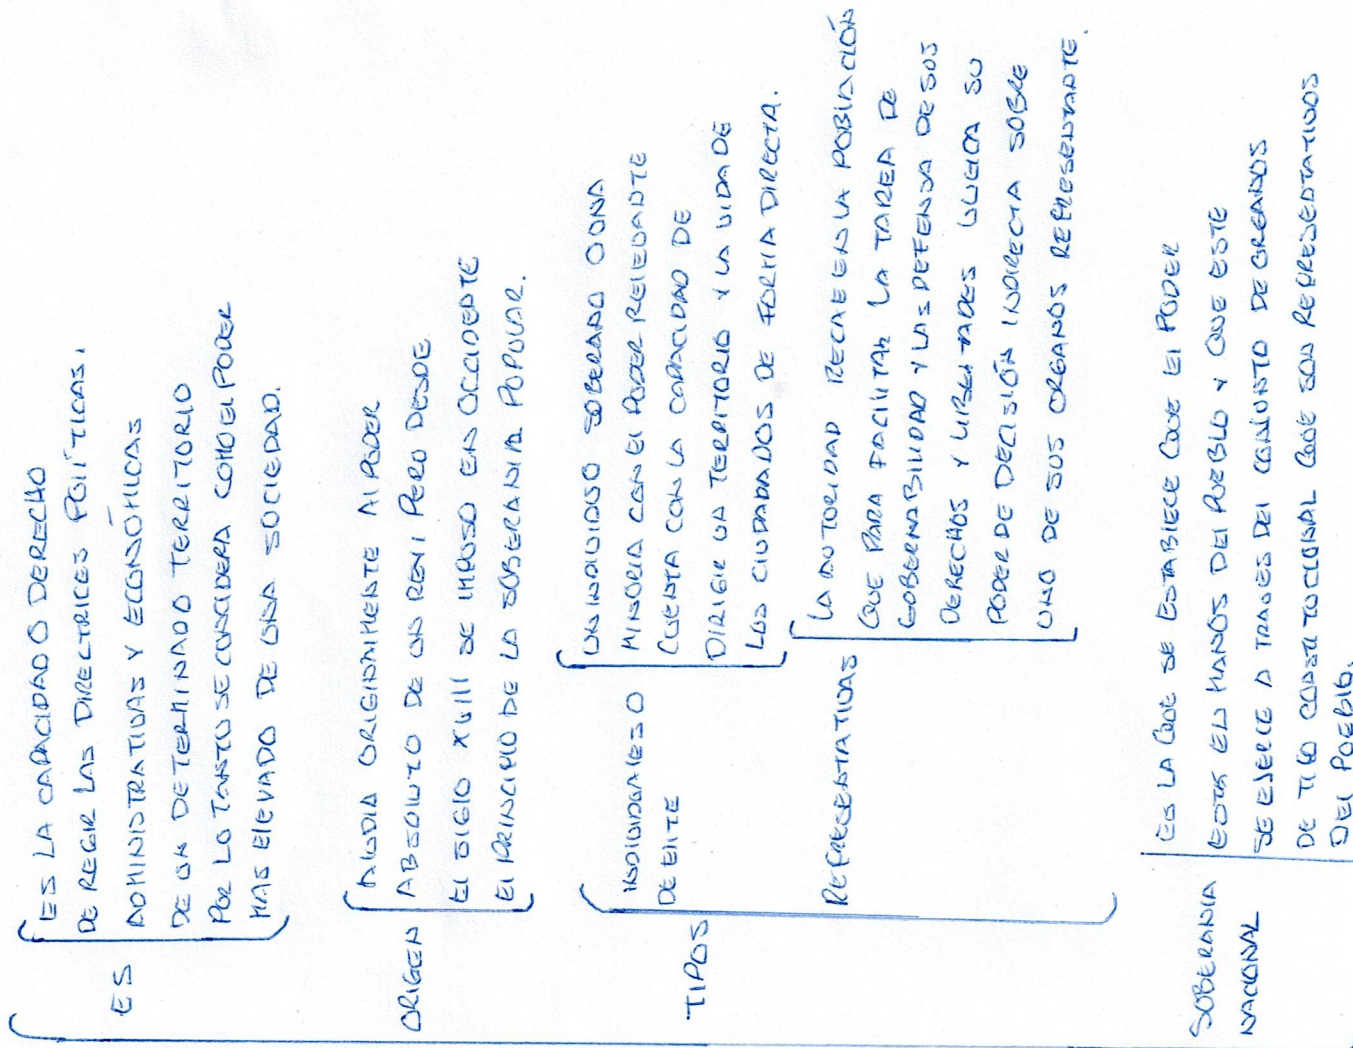 ES
ES LA CAPACIDAD O DERECHO
DE REGIR LAS DIRECTRICES POLÍTICAS,
ADMINISTRATIVAS Y ECONÓMICAS
DE UN DETERMINADO TERRITORIO
POR LO TANTO SE CONCIDERA COMO EL PODER
MAS ELEVADO DE UNA SOCIEDAD.
ORIGEN
ALUDIA ORIGINALMENTE AL PODER
ABSOLUTO DE UN REY; PERO DESDE
EL SIGLO XVIII SE IMPUSO EN OCCIDENTE
EL PRINCIPIO DE LA SOBERANIA POPULAR.
TIPOS
INDIVIDUALES O
DE ELITE
UN INDIVIDUO SOBERANO O UNA
MINORIA CON EL PODER RELEVANTE
CUENTA CON LA CAPACIDAD DE
DIRIGIR UN TERRITORIO Y LA VIDA DE
LOS CIUDADADOS DE FORMA DIRECTA.
REPRESENTATIVAS
LA AUTORIDAD RECAE EN LA POBLACIÓN
QUE PARA FACILITAR LA TAREA DE
GOBERNABILIDAD Y LAS DEFENSA DE SUS
DERECHOS Y LIBERTADES SU
PODER DE DECISIÓN INDIRECTA SOBRE
UNO DE SUS ORGANOS REPRESENTANTE.
SOBERANIA
NACIONAL
ES LA QUE SE ESTABLECE QUE EL PODER
ESTA EN MANOS DEL PUEBLO Y QUE ESTE
SE EJERCE A TRAVES DEL CONJUNTO DE ORGANOS
DE TIPO CONSTITUCIONAL QUE SON REPRESENTATIVOS
DEL PUEBLO.